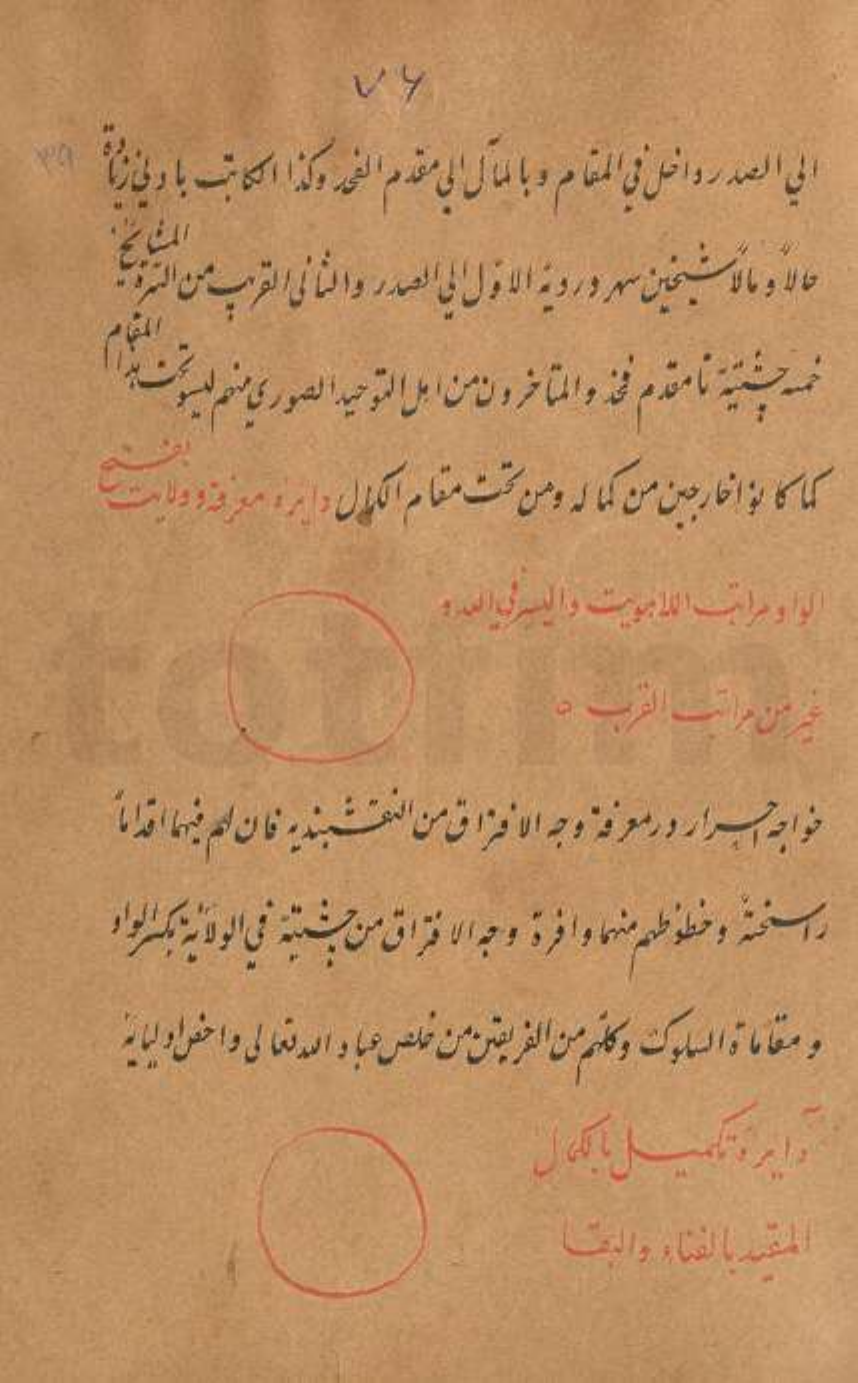 ٧٦
٣٩
الي الصدر داخل في المقام وبالمآل الي مقدم الفخذ وكذا الكاتب بادني زيادة
حالاً و مالاً شيخين سهروردية الاوّل الي الصدر والثاني القريب من الترة المشايخ
خمسه چشتيّة تا مقدم فخذ والمتاخرون من اهل التوحيد الصوري منهم ليسو تحت هذا المقام
كما كانوا خارجين من كماله ومن تحت مقام الكمال دايره معرفة وولايت بفتح
الواو مراتب اللاهويت والسير في العدو
غير من مراتب القرب ٥
خواجه احرار در معرفة وجه الافتراق من النقشبنديه فان لهم فيهما اقداماً
راسخة وخطوظهم منهما وافرة وجه الافتراق من چشتية في الولاية بكسر الواو
و مقاماة السلوك وكلّهم من الفريقين من خلص عباد الله تعالى واخص اوليايه
دايرۀ تكميل بالكمال
المقيد بالفناء والبقا
totfim